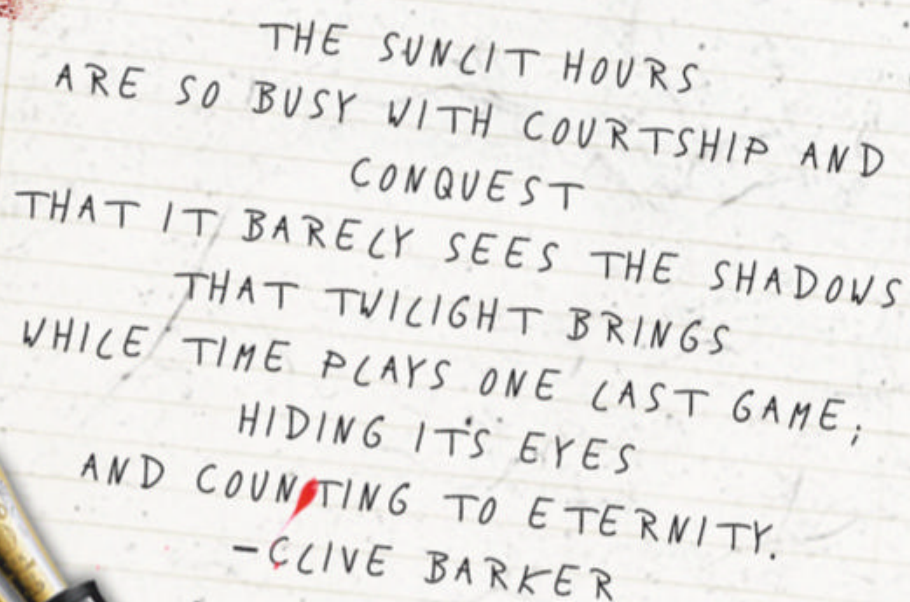 THE SUNLIT HOURS
ARE SO BUSY WITH COURTSHIP AND
CONQUEST
THAT IT BARELY SEES THE SHADOWS
THAT TWILIGHT BRINGS
WHILE TIME PLAYS ONE LAST GAME;
HIDING IT'S EYES
AND COUNTING TO ETERNITY.
-CLIVE BARKER